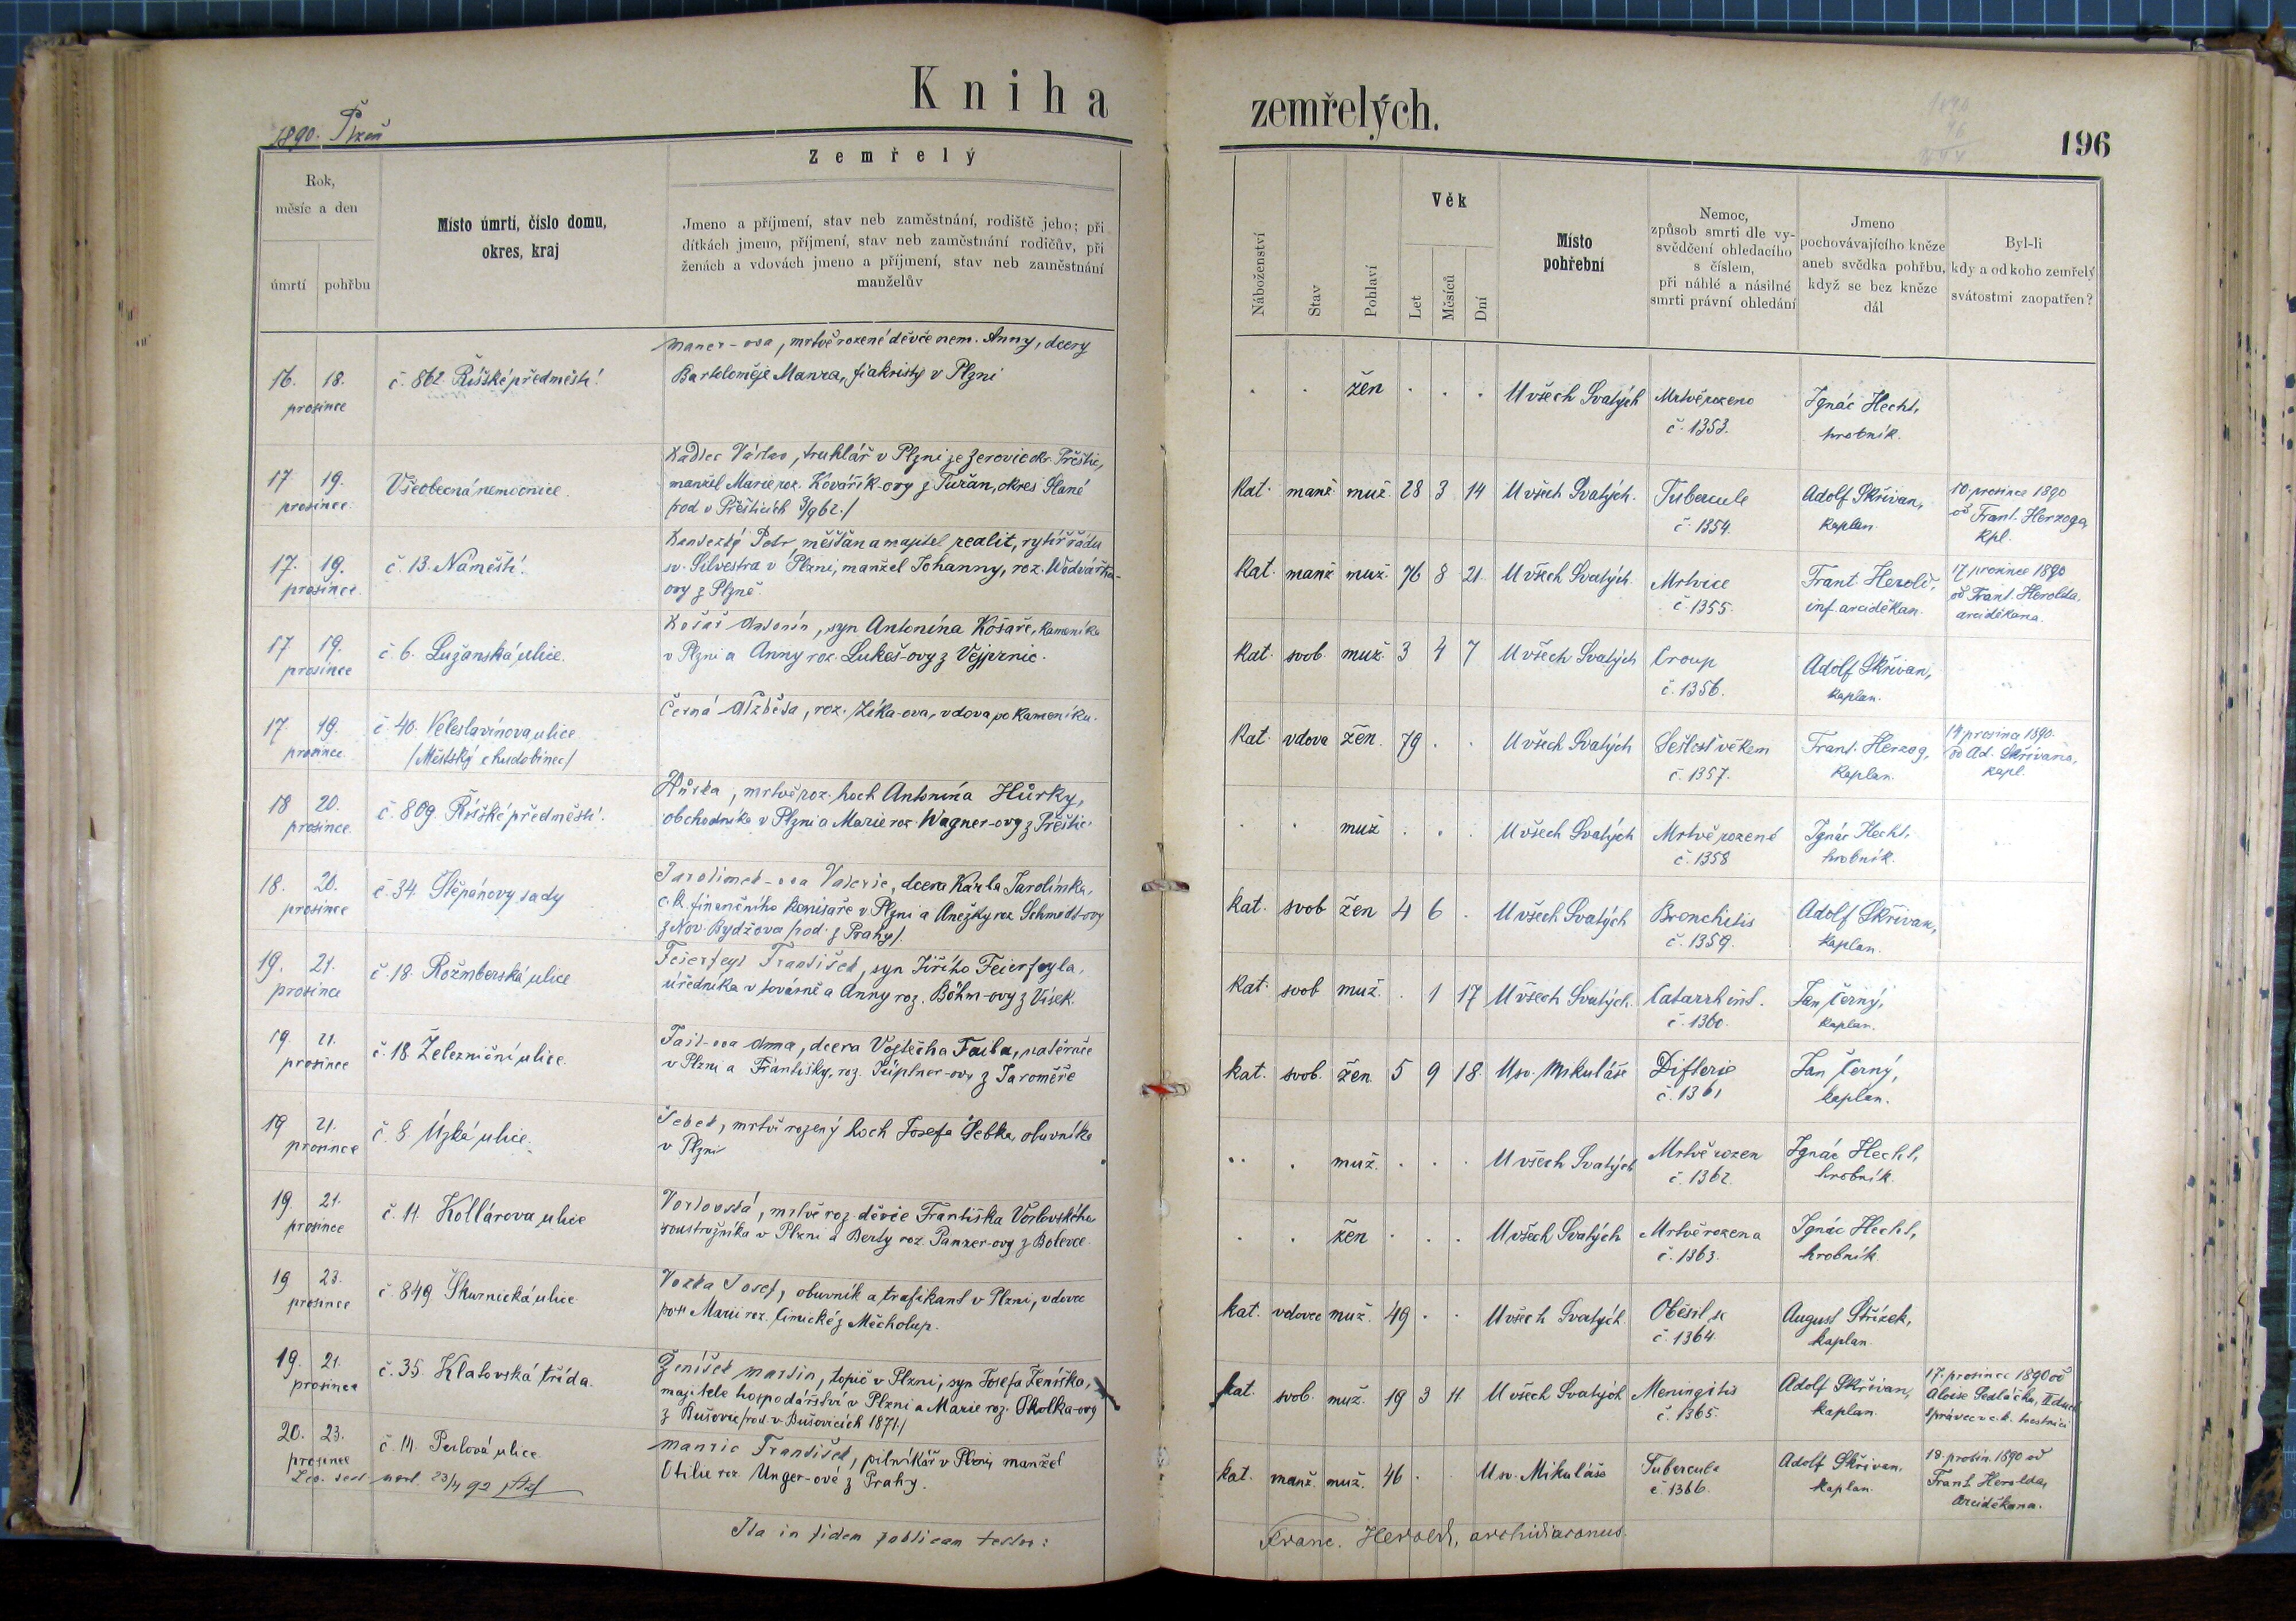 Kniha zemřelých.
1890. Plzeň
196
Rok,
měsíc a den
úmrtí
pohřbu
Místo úmrtí, číslo domu,
okres, kraj
Zemřelý
Jmeno a příjmení, stav neb zaměstnání, rodiště jeho; při
dítkách jmeno, příjmení, stav neb zaměstnání rodičův, při
ženách a vdovách jmeno a příjmení, stav neb zaměstnání
manželův
Náboženství
Stav
Pohlaví
Věk
Let
Měsíců
Dní
Místo
pohřební
Nemoc,
způsob smrti dle vy-
svědčení ohledacího
s číslem,
při náhlé a násilné
smrti právní ohledání
Jmeno
pochovávajícího kněze
aneb svědka pohřbu,
když se bez kněze
dál
Byl-li
kdy a od koho zemřelý
svátostmi zaopatřen?
16. 18.
prosince
č. 862 Říšské předměstí
Maner-ova, mrtvě rozené děvče nem. Anny, dcery
Bartoloměje Manra, fiakristy v Plzni
žen
U všech Svatých
Mrtvě rozeno
č. 1353.
Ignác Hecht,
hrobník.
17. 19.
prosince
Všeobecná nemocnice.
Kadlec Václav, truhlář v Plzni ze Zerovic okr. Přeštic,
manžel Marie roz. Kovářík-ovy z Tuřan, okres Slané
/rod v Přešticích 3/9 62./
kat. manž. muž. 28 3 14
U všech Svatých.
Tubercule
č. 1354.
Adolf Skřivan,
kaplan.
10. prosince 1890
od Frant. Herzoga
kpl.
17. 19.
prosince.
č. 13. Náměstí.
Petr, měšťan a majitel realit, rytíř řádu
sv. Silvestra v Plzni, manžel Johanny, roz. Wodvářka-
ovy z Plzně.
kat. manž muž. 76 8 21.
U všech Svatých.
Mrtvice
č. 1355.
Frant. Herold,
inf. arciděkan.
17 prosince 1890
od Frant. Herolda,
arciděkana.
17 19.
prosince
č. 6. Lužanská ulice.
Košař Antonín, syn Antonína Košaře, kameníka
v Plzni a Anny roz. Lukeš-ovy z Vejprnic.
kat. svob. muž. 3 4 7
U všech Svatých
Croup
č. 1356.
Adolf Skřivan,
kaplan.
17. 19.
prosince.
č. 40. Veleslavínova ulice
/Městský chudobinec/
Černá Alžběta, roz. Zíka-ova, vdova po kameníku.
kat. vdova žen. 79
U všech Svatých
Sešlost věkem
č. 1357.
Frant. Herzog,
kaplan.
14 prosince 1890.
od Ad. Skřivana,
kapl.
18 20.
prosince.
č. 809 Říšské předměstí.
Hůrka, mrtvě roz. hoch Antonína Hůrky,
obchodníka v Plzni a Marie roz. Wagner-ovy z Přeštic.
muž
U všech Svatých
Mrtvě rozené
č. 1358
Ignác Hecht,
hrobník.
18. 20.
prosince
č. 34. Štěpánovy sady
Jarolimek-ova Valerie, dcera Karla Jarolímka,
c.k. finančního komisaře v Plzni a Anežky roz. Schmidt-ovy
z Nov. Bydžova /rod. z Prahy/.
kat. svob žen 4 6
U všech Svatých
Bronchitis
č. 1359.
Adolf Skřivan,
kaplan.
19. 21.
prosince
č. 18. Rožmberská ulice
Feierfeyl František, syn Jiřího Feierfeyla,
úředníka v továrně a Anny roz. Böhm-ovy z Vísek.
kat. svob muž. 1 17
U všech Svatých.
Catarrh int.
č. 1360.
Jan Černý,
kaplan.
19 21.
prosince
č. 18. Železniční ulice.
Fait-ova Anna, dcera Vojtěcha Faita, natěrače
v Plzni a Františky, roz. z Jaroměře
kat. svob. žen. 5 9 18.
U sv. Mikuláše
Difterie
č. 1361
Jan Černý,
kaplan.
19 21.
prosince
č. 8. Úzká ulice.
Šebek, mrtvě rozený hoch Josefa Šebka, obuvníka
v Plzni
muž.
U všech Svatých
Mrtvě rozen
č. 1362.
Ignác Hecht,
hrobník.
19. 21.
prosince
č. 11. Kollárova ulice
Vorlovská, mrtvě roz. děvče Františka Vorlovského
soustružníka v Plzni a Berty roz. Panzer-ovy z Bolevce.
žen
U všech Svatých
Mrtvě rozena
č. 1363.
Ignác Hecht,
hrobník.
19 23.
prosince
č. 849 Skurnická ulice.
Vozka Josef, obuvník a trafikant v Plzni, vdovec
po Marii roz. z Měcholup.
kat. vdovec muž. 49
U všech Svatých.
Oběsil se
č. 1364.
August Střízek,
kaplan.
19. 21.
prosince
č. 35. Klatovská třída.
Ženíšek Martin, topič v Plzni, syn Josefa Ženíška,
majitele hospodářství v Plzni a Marie roz. Skolka-ovy
z Bušovic /rod. v Bušovicích 1871./
kat. svob. muž. 19 3 11
U všech Svatých
Meningitis
č. 1365.
Adolf Skřivan,
kaplan.
17. prosince 1890 od
Aloise Sedláčka,
správce v c.k. trestnici
20. 23.
prosince
č. 14. Perlová ulice
František, pilníkář v Plzni, manžel
Otilie roz. Unger-ové z Prahy.
kat. manž. muž. 46.
U sv. Mikuláše
Tubercule
č. 1366.
Adolf Skřivan,
kaplan.
18. prosin. 1890 od
Frant. Herolda,
arciděkana.
23/4 92
Ita in fidem publicam testor:
Franc. Herold, archidiaconus.